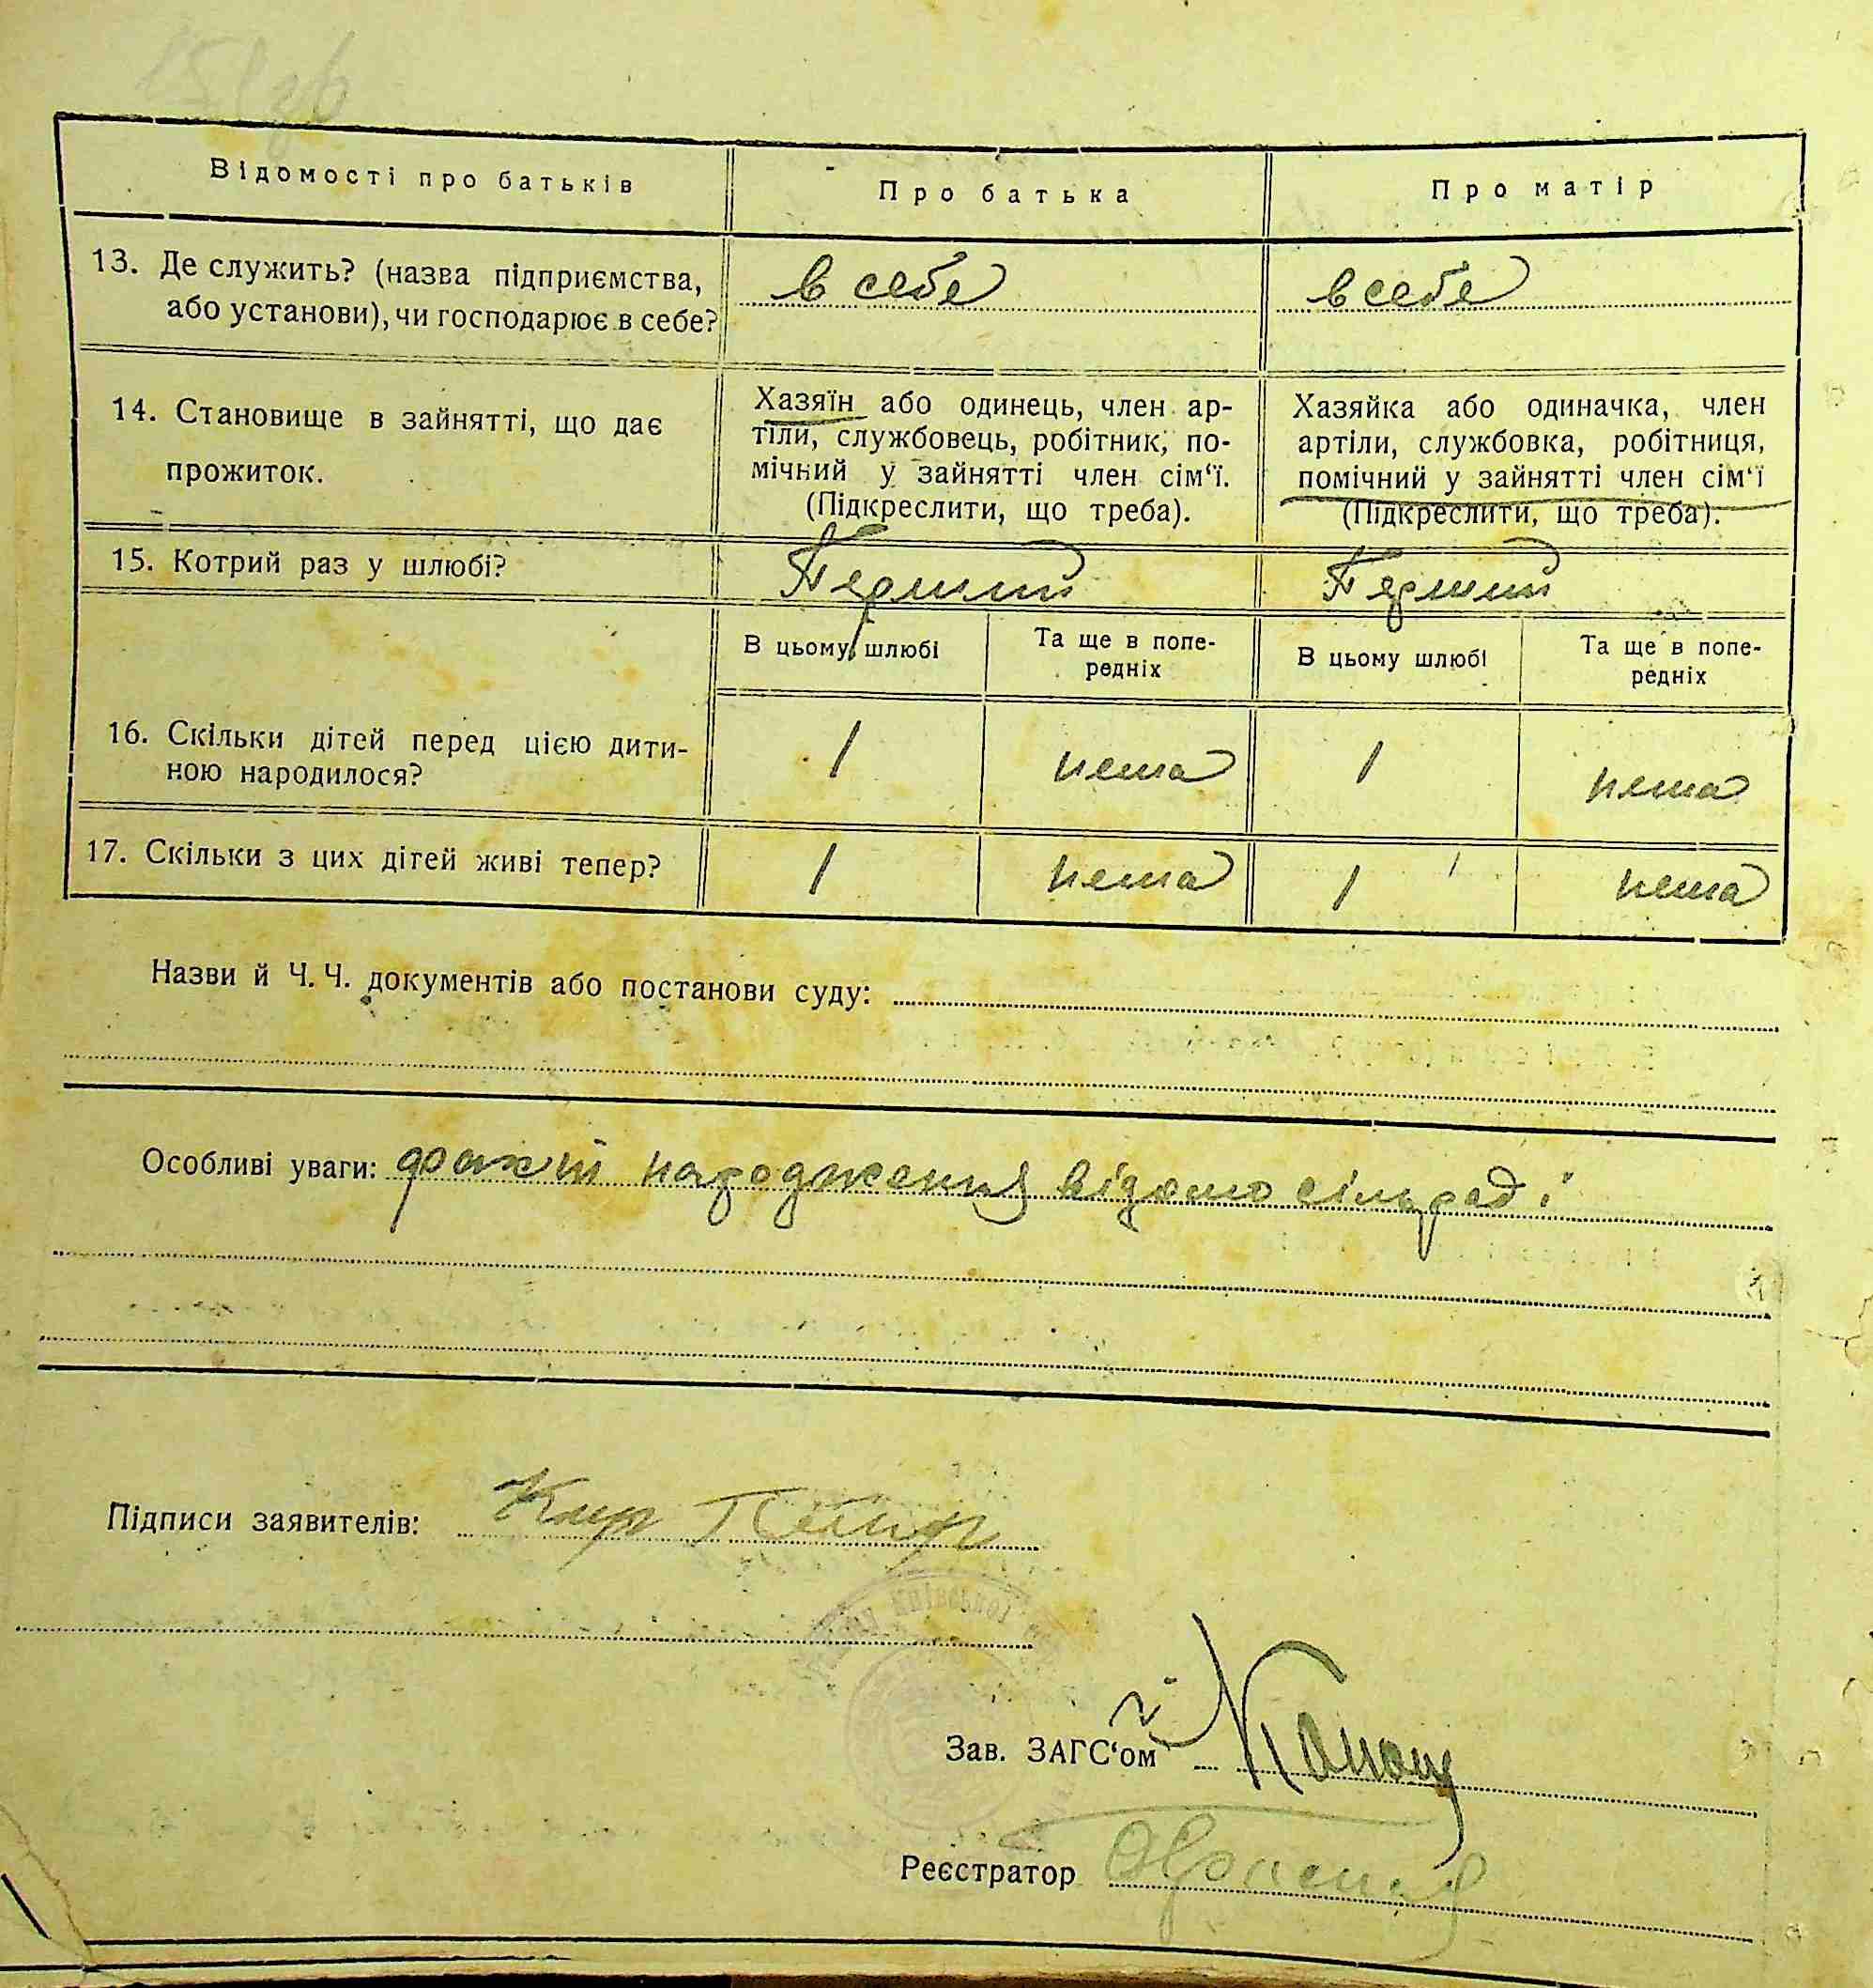 Відомості про батьків Про батька Про матір
13. Де служить? (назва підприємства, в себе в себе
або установи), чи господарює в себе?
14. Становище в зайнятті, що дає
прожиток.
Хазяїн або одинець, член ар-
тіли, службовець, робітник, по-
мічний у зайнятті член сім‘ї.
(Підкреслити, що треба).
Хазяйка або одиначка, член
артіли, службовка, робітниця,
помічний у зайнятті член сім‘ї
(Підкреслити, що треба).
15. Котрий раз у шлюбі? Перший Перший
В цьому шлюбі Та ще в попе-
редніх
В цьому шлюбі Та ще в попе-
редніх
16. Скільки дітей перед цією дити-
ною народилося?
1 нема 1 нема
17. Скільки з цих дітей живі тепер? 1 нема 1 нема
Назви й Ч. Ч. документів або постанови суду:
Особливі уваги: факт народження відомо сільраді
Підписи заявителів:
Київської
Зав. ЗАГС‘ом
Реєстратор